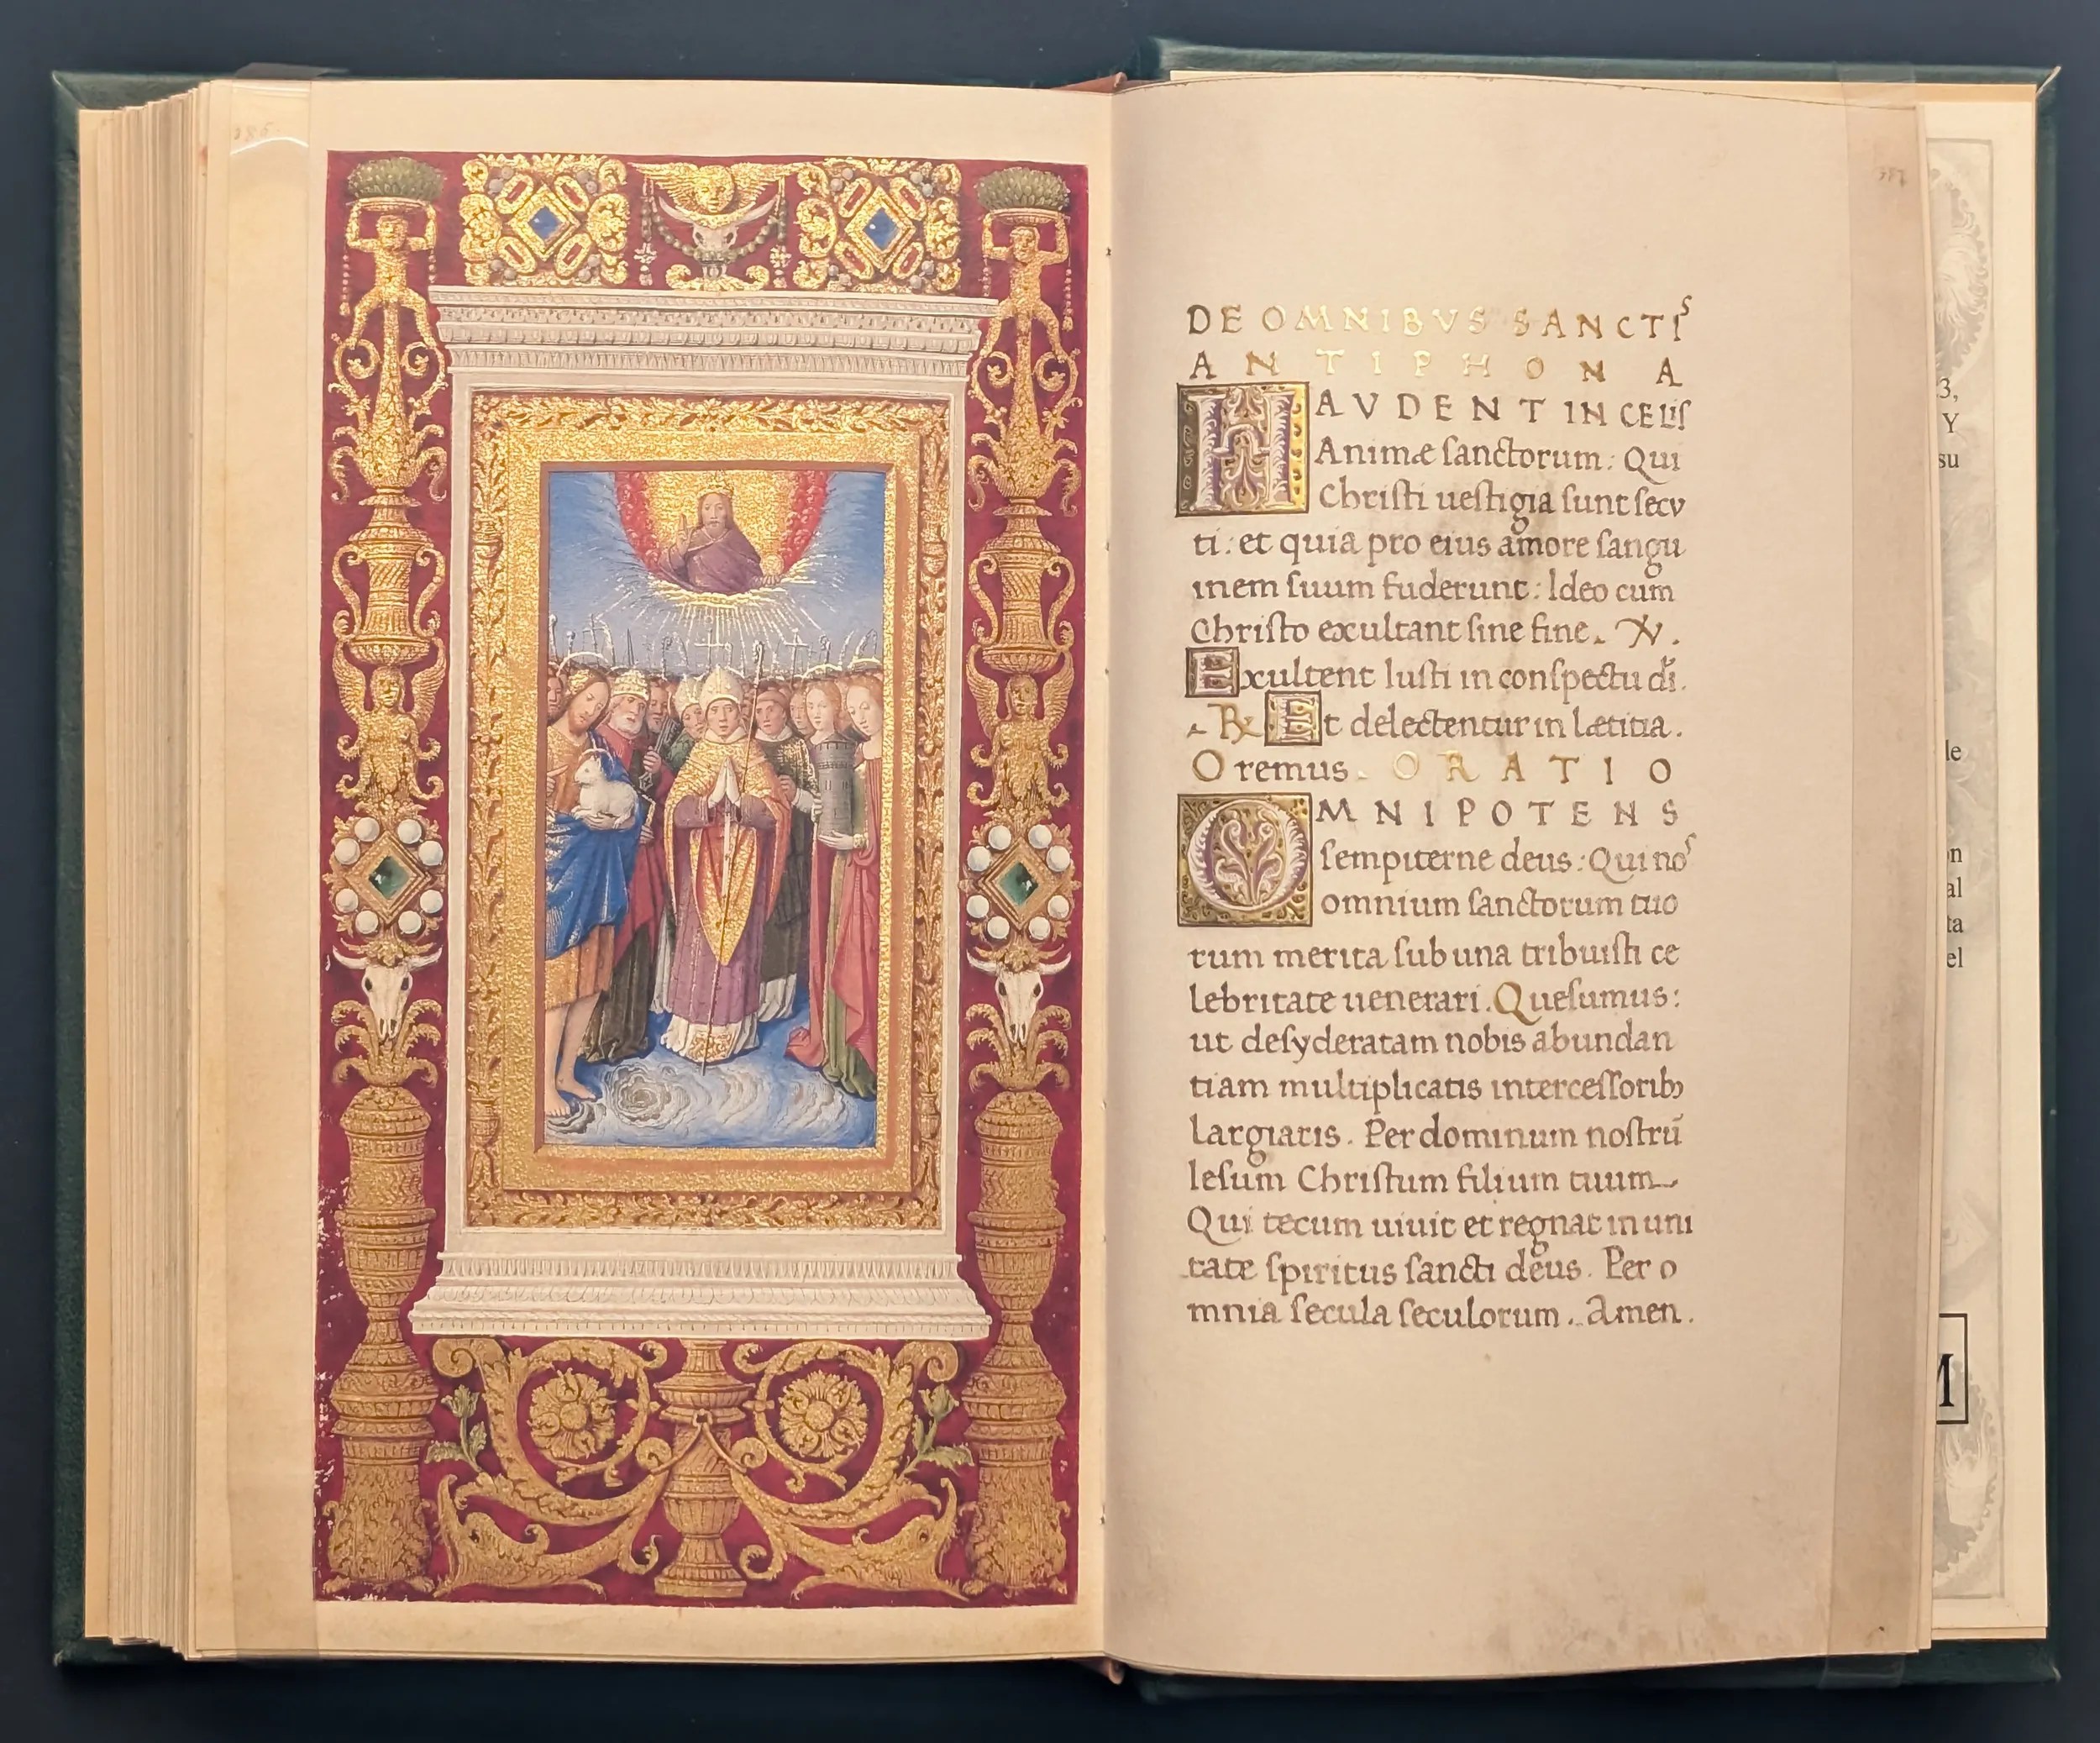 386
387
DE OMNIBVS SANCTIS
ANTIPHONA
HAVDENT IN CELIS
Animæ sanctorum: Qui
Christi uestigia sunt secv
ti: et quia pro eius amore sangu
inem suum fuderunt: Ideo cum
Christo exultant sine fine. ℣.
Exultent Iusti in conspectu dī.
℟ Et delectentur in Lætitia.
Oremus. ORATIO
OMNIPOTENS
sempiterne deus: Qui nos
omnium sanctorum tuo
rum merita sub una tribuisti ce
lebritate uenerari. Quesumus:
ut desyderatam nobis abundan
tiam multiplicatis intercessoribꝫ
largiaris. Per dominum nostrū
Iesum Christum filium tuum
Qui tecum uiuit et regnat in uni
tate spiritus sancti deus. Per o
mnia secula seculorum. Amen.
3,
Y
su
le
on
al
ta
el
M